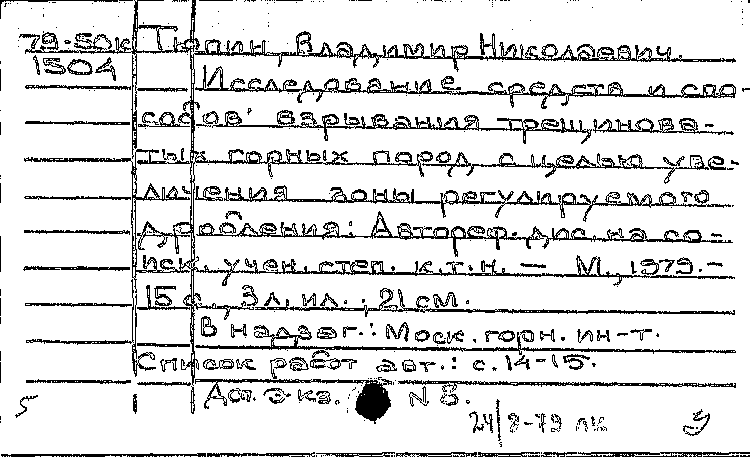 79-50к Тюпин, Владимир Николаевич.
1504 Исследование средств и спо-
собов взрывания трещинова-
тых горных пород с целью уве-
личения зоны регулируемого
дробления: Автореф. дис. на со-
иск. учен. степ. к.т.н. — М., 1979.-
15 с., 3 л. ил.; 21 см.
В надзаг.: Моск. горн. ин-т.
Список работ авт.: с. 14-15.
Деп. экз. N 8.
5 24/8-79